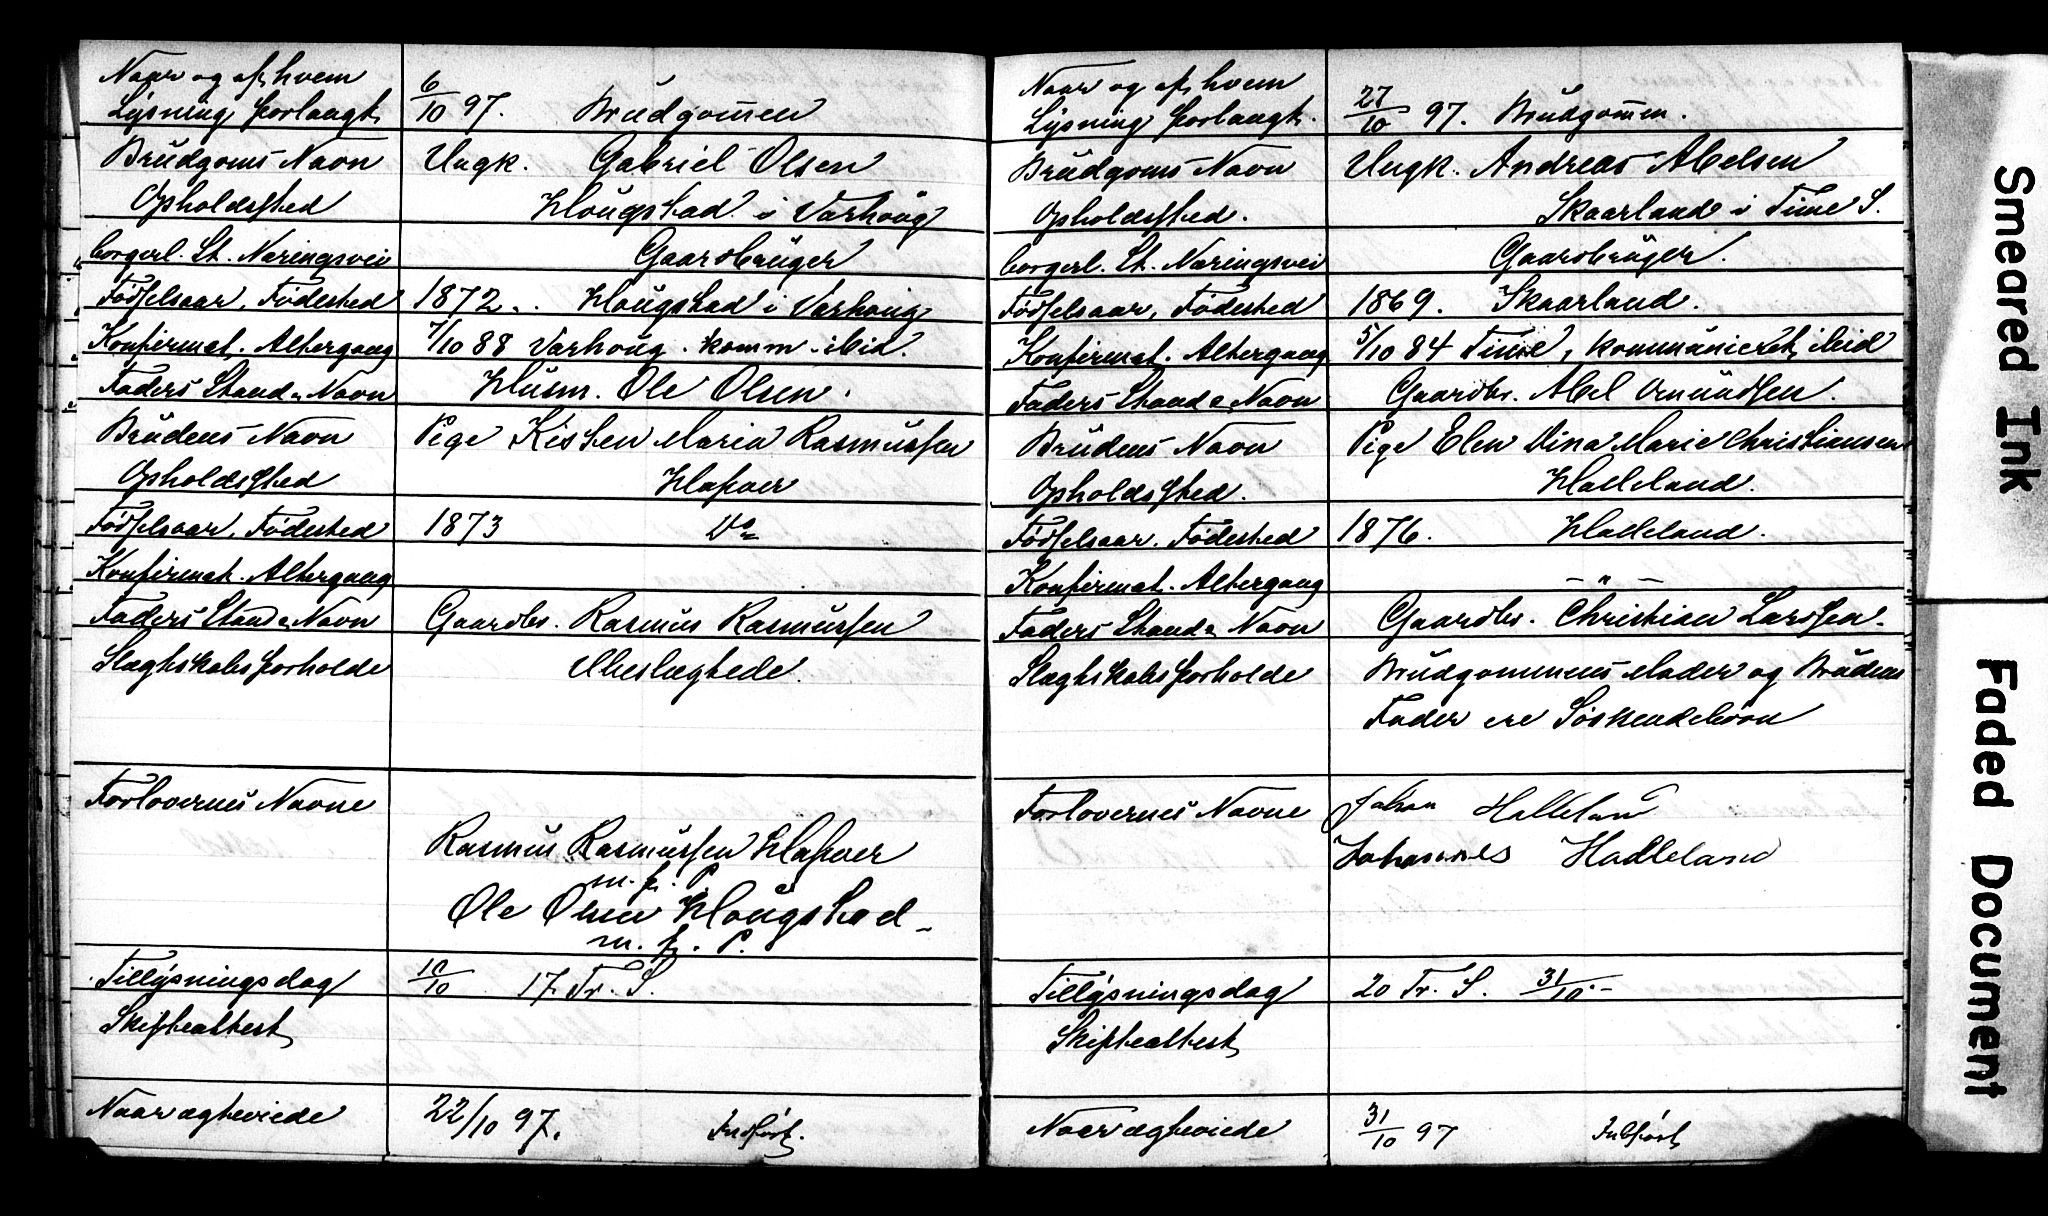 Naar og af hvem
Lysning forlangt. 6/10 97. Brudgom̅en
Brudgoms Navn Ungk. Gabriel Olsen
Opholdssted Haugstad i Varhoug
borgerl. St. Næringsvei Gaardbruger
Fødselsaar, Fødested 1872. Haugstad i Varhoug
Konfirmat. Altergang 7/10 88 Varhoug. komm. ibid.
Faders Stand & Navn Husm. Ole Olsen.
Brudens Navn Pige Kisten Maria Rasmussen
Opholdssted Hafver
Fødselsaar, Fødested 1873 Do
Konfirmat. Altergang
Faders Stand & Navn Gaardbr. Rasmus Rasmussen
Slægtskabsforholde Ubeslægtede.
Forlovernes Navne
Rasmus Rasmussen Hafver
m. f. P.
Ole Olsen Haugstad
m. f. P.
Tillysningsdag 10/10 17. Tr. S.
Skifteattest
Naar ægteviede 22/10 97. Indført.
Naar og af hvem
Lysning forlangt. 27/10 97. Brudgom̅en.
Brudgoms Navn Ungk. Andreas Abelsen
Opholdssted. Skaarland i Time S.
borgerl. St. Næringsvei Gaardbruger.
Fødselsaar, Fødested 1869. Skaarland.
Konfirmat. Altergang 5/10 84 Time, kommuniceret ibid
Faders Stand & Navn Gaardbr. Abel Omundsen.
Brudens Navn Pige Elen Dina Marie Christiansen
Opholdssted. Halleland.
Fødselsaar. Fødested 1876. Halleland.
Konfirmat. Altergang – " –
Faders Stand & Navn Gaardbr. Christian Larssen.
Slægtskabsforholde Brudgommens Moder og Brudens
Fader ere Søskendebørn
Forlovernes Navne Johan Halleland
Johannes Halleland
Tillysningsdag 20 Tr. S. 31/10.-
Skifteattest
Naar ægteviede 31/10 97 Indført
Smeared Ink
Faded Document